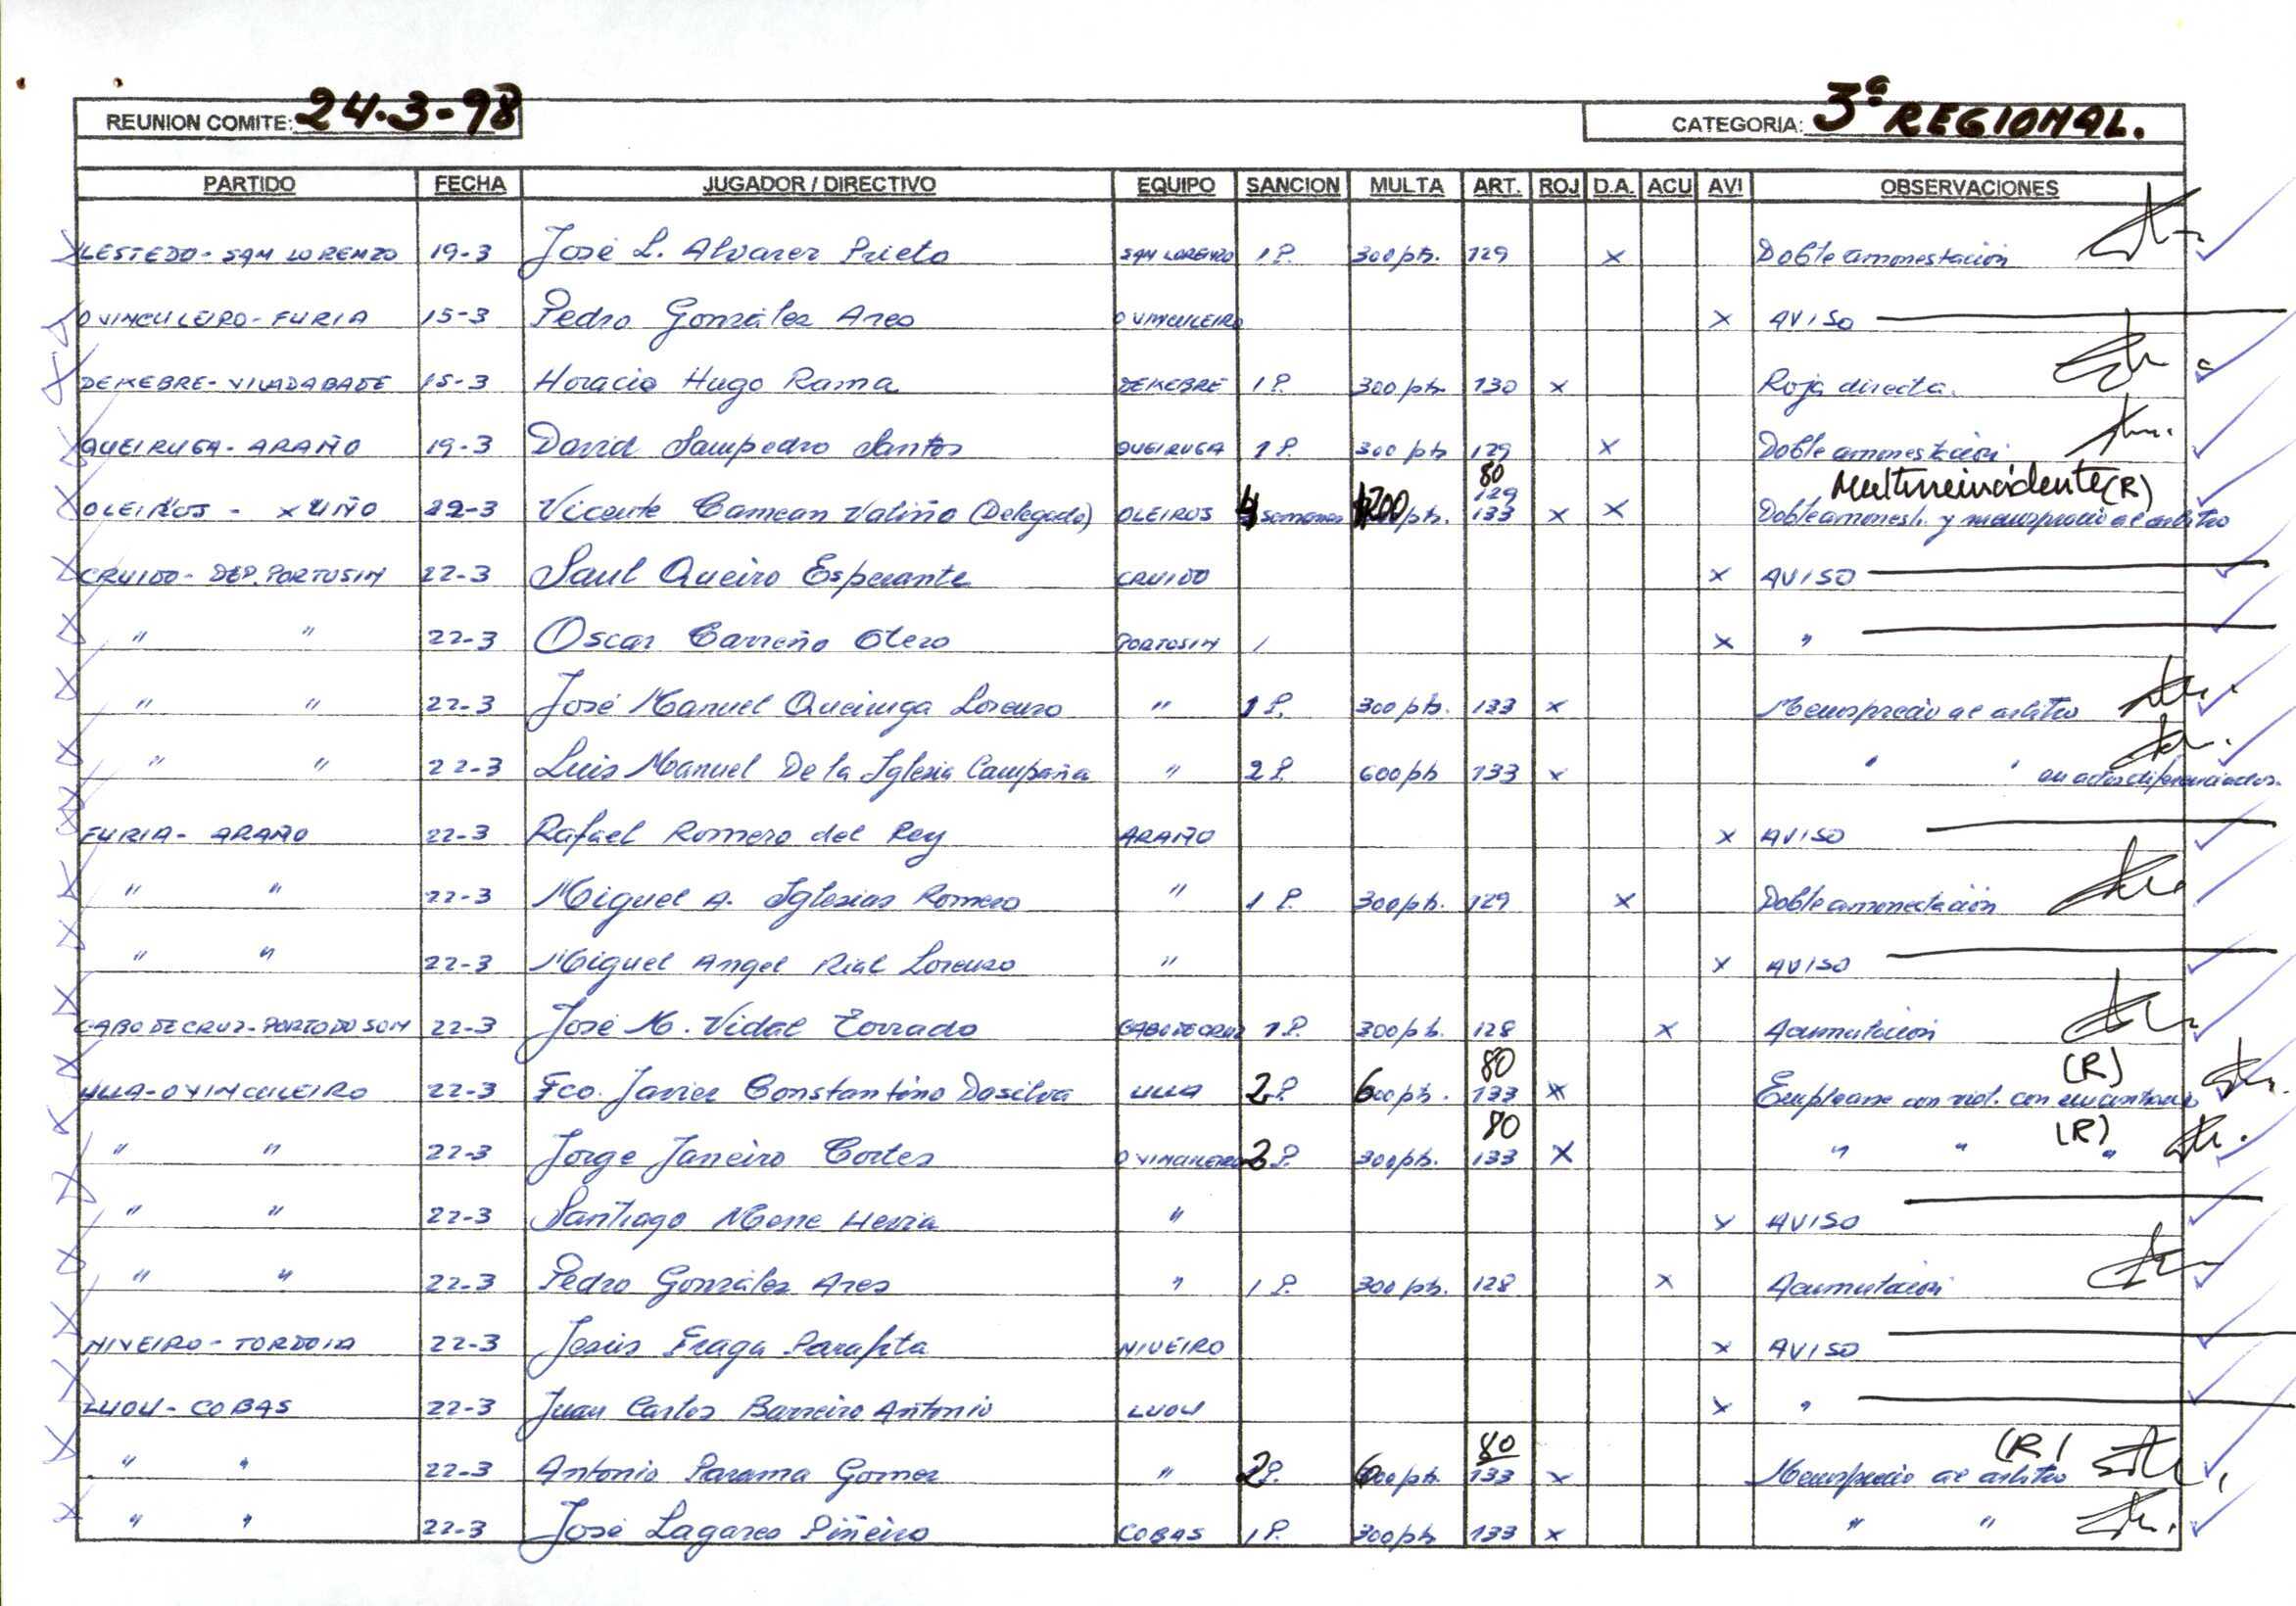 REUNION COMITE: 24.3-98 CATEGORIA: 3ª REGIONAL.
PARTIDO FECHA JUGADOR / DIRECTIVO EQUIPO SANCION MULTA ART. ROJ D.A. ACU AVI OBSERVACIONES
LESTEDO - SAN LORENZO 19-3 José L. Alvarez Prieto SAN LORENZO 1 P. 300 pts. 129 x Doble amonestación
O VINCULEIRO - FURIA 15-3 Pedro González Ares O VINCULEIRO x AVISO
DEXEBRE - VILADABADE 15-3 Horacio Hugo Rama DEXEBRE 1 P. 300 pts. 130 x Roja directa.
QUEIRUGA - ARAÑO 19-3 David Sampedro Santos QUEIRUGA 1 P. 300 pts 129 x Doble amonestación
80 Multireincidente (R)
129
OLEIROS - XUÑO 22-3 Vicente Camean Valiño (Delegado) OLEIROS 4 semanas 1200 pts. 133 x x Doble amonest. y menosprecio al arbitro
CRUIDO - DEP. PORTOSIN 22-3 Saul Queiro Esperante CRUIDO x AVISO
" " 22-3 Oscar Carreño Otero PORTOSIN / x "
" " 22-3 José Manuel Queiruga Lorenzo " 1 P. 300 pts. 133 x Menosprecio al arbitro
" " 22-3 Luis Manuel De la Iglesia Campaña " 2 P. 600 pts 133 x " " en actos diferenciados.
FURIA - ARAÑO 22-3 Rafael Romero del Rey ARAÑO x AVISO
" " 22-3 Miguel A. Iglesias Romero " 1 P. 300 pts. 129 x Doble amonestación
" " 22-3 Miguel Angel Rial Lorenzo " x AVISO
CABO DE CRUZ - PORTO DO SON 22-3 José M. Vidal Torrado CABO DE CRUZ 1 P. 300 pts. 128 x Acumulación
80 (R)
ULLA - O VINCULEIRO 22-3 Fco. Javier Constantino Dasilva ULLA 2 P. 600 pts. 133 x Emplearse con viol. con un contrario
80 (R)
" " 22-3 Jorge Janeiro Cortes O VINCULEIRO 2 P. 300 pts. 133 x " " "
" " 22-3 Santiago Mone Hevia " x AVISO
" " 22-3 Pedro González Ares " 1 P. 300 pts. 128 x Acumulación
NIVEIRO - TORDOIA 22-3 Jesús Fraga Parafita NIVEIRO x AVISO
LUOU - COBAS 22-3 Juan Carlos Barreiro Antonio LUOU x "
80 (R)
" " 22-3 Antonio Parama Gomez " 2 P. 600 pts. 133 x Menosprecio al arbitro
" " 22-3 José Lagares Piñeiro COBAS 1 P. 300 pts 133 x " "